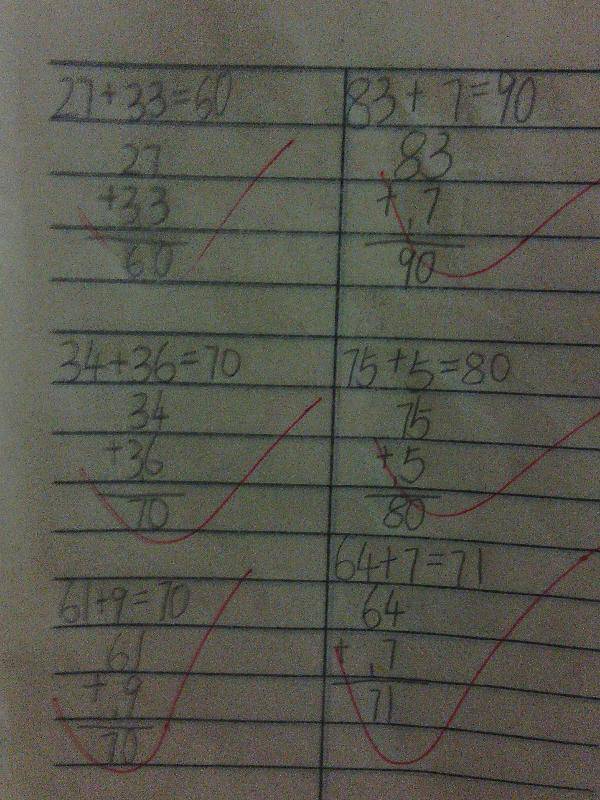 27+33=60
27
+33
60
83+7=90
83
+7
90
34+36=70
34
+36
70
75+5=80
75
+5
80
61+9=70
61
+9
70
64+7=71
64
+7
71